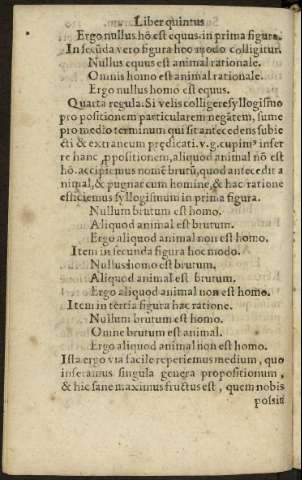 Liber quintus
Ergo nullus hõ est equus in prima figura.
In secũda vero figura hoc modo colligitur.
Nullus equus est animal rationale.
Omnis homo est animal rationale.
Ergo nullus homo est equus.
Quarta regula. Si velis colligere syllogismo
pro positionem particularem negãtem, sume
pro medio terminum qui sit antecedens subie
cti & extraneum predicati. v. g. cupim⁹ infer
re hanc ꝓpositionem, aliquod animal nõ est
hõ. accipiemus nomẽ brutũ, quod antecedit a
nimal, & pugnat cum homine, & hac ratione
efficiemus syllogismum in prima figura.
Nullum brutum est homo.
Aliquod animal est brutum.
Ergo aliquod animal non est homo.
Item in secunda figura hoc modo.
Nullus homo est brutum.
Aliquod animal est brutum.
Ergo aliquod animal non est homo.
Item in tertia figura hac ratione.
Nullum brutum est homo.
Omne brutum est animal.
Ergo aliquod animal non est homo.
Ista ergo via facile reperiemus medium, quo
inferamus singula genera propositionum,
& hic sane maximus fructus est, quem nobis
possiti